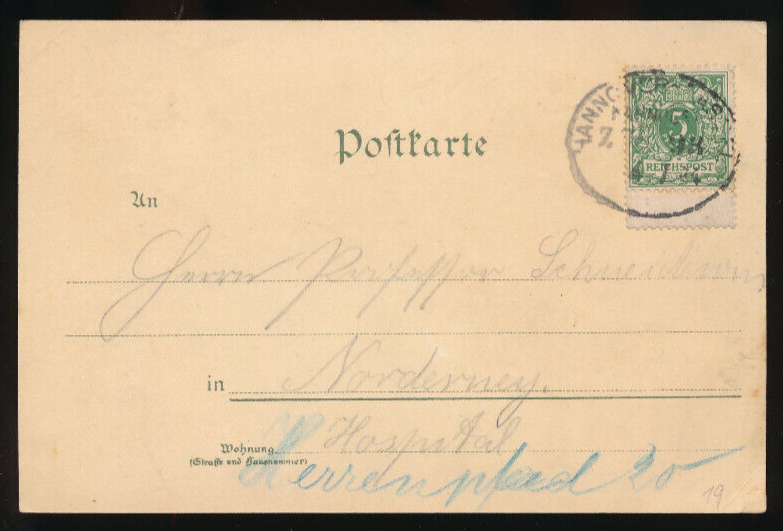 Postkarte
5
REICHSPOST
98
An
Herrn Professor
in Norderney.
Hospital
Wohnung
(Straße und Hausnummer)
Herrenpfad 20
19